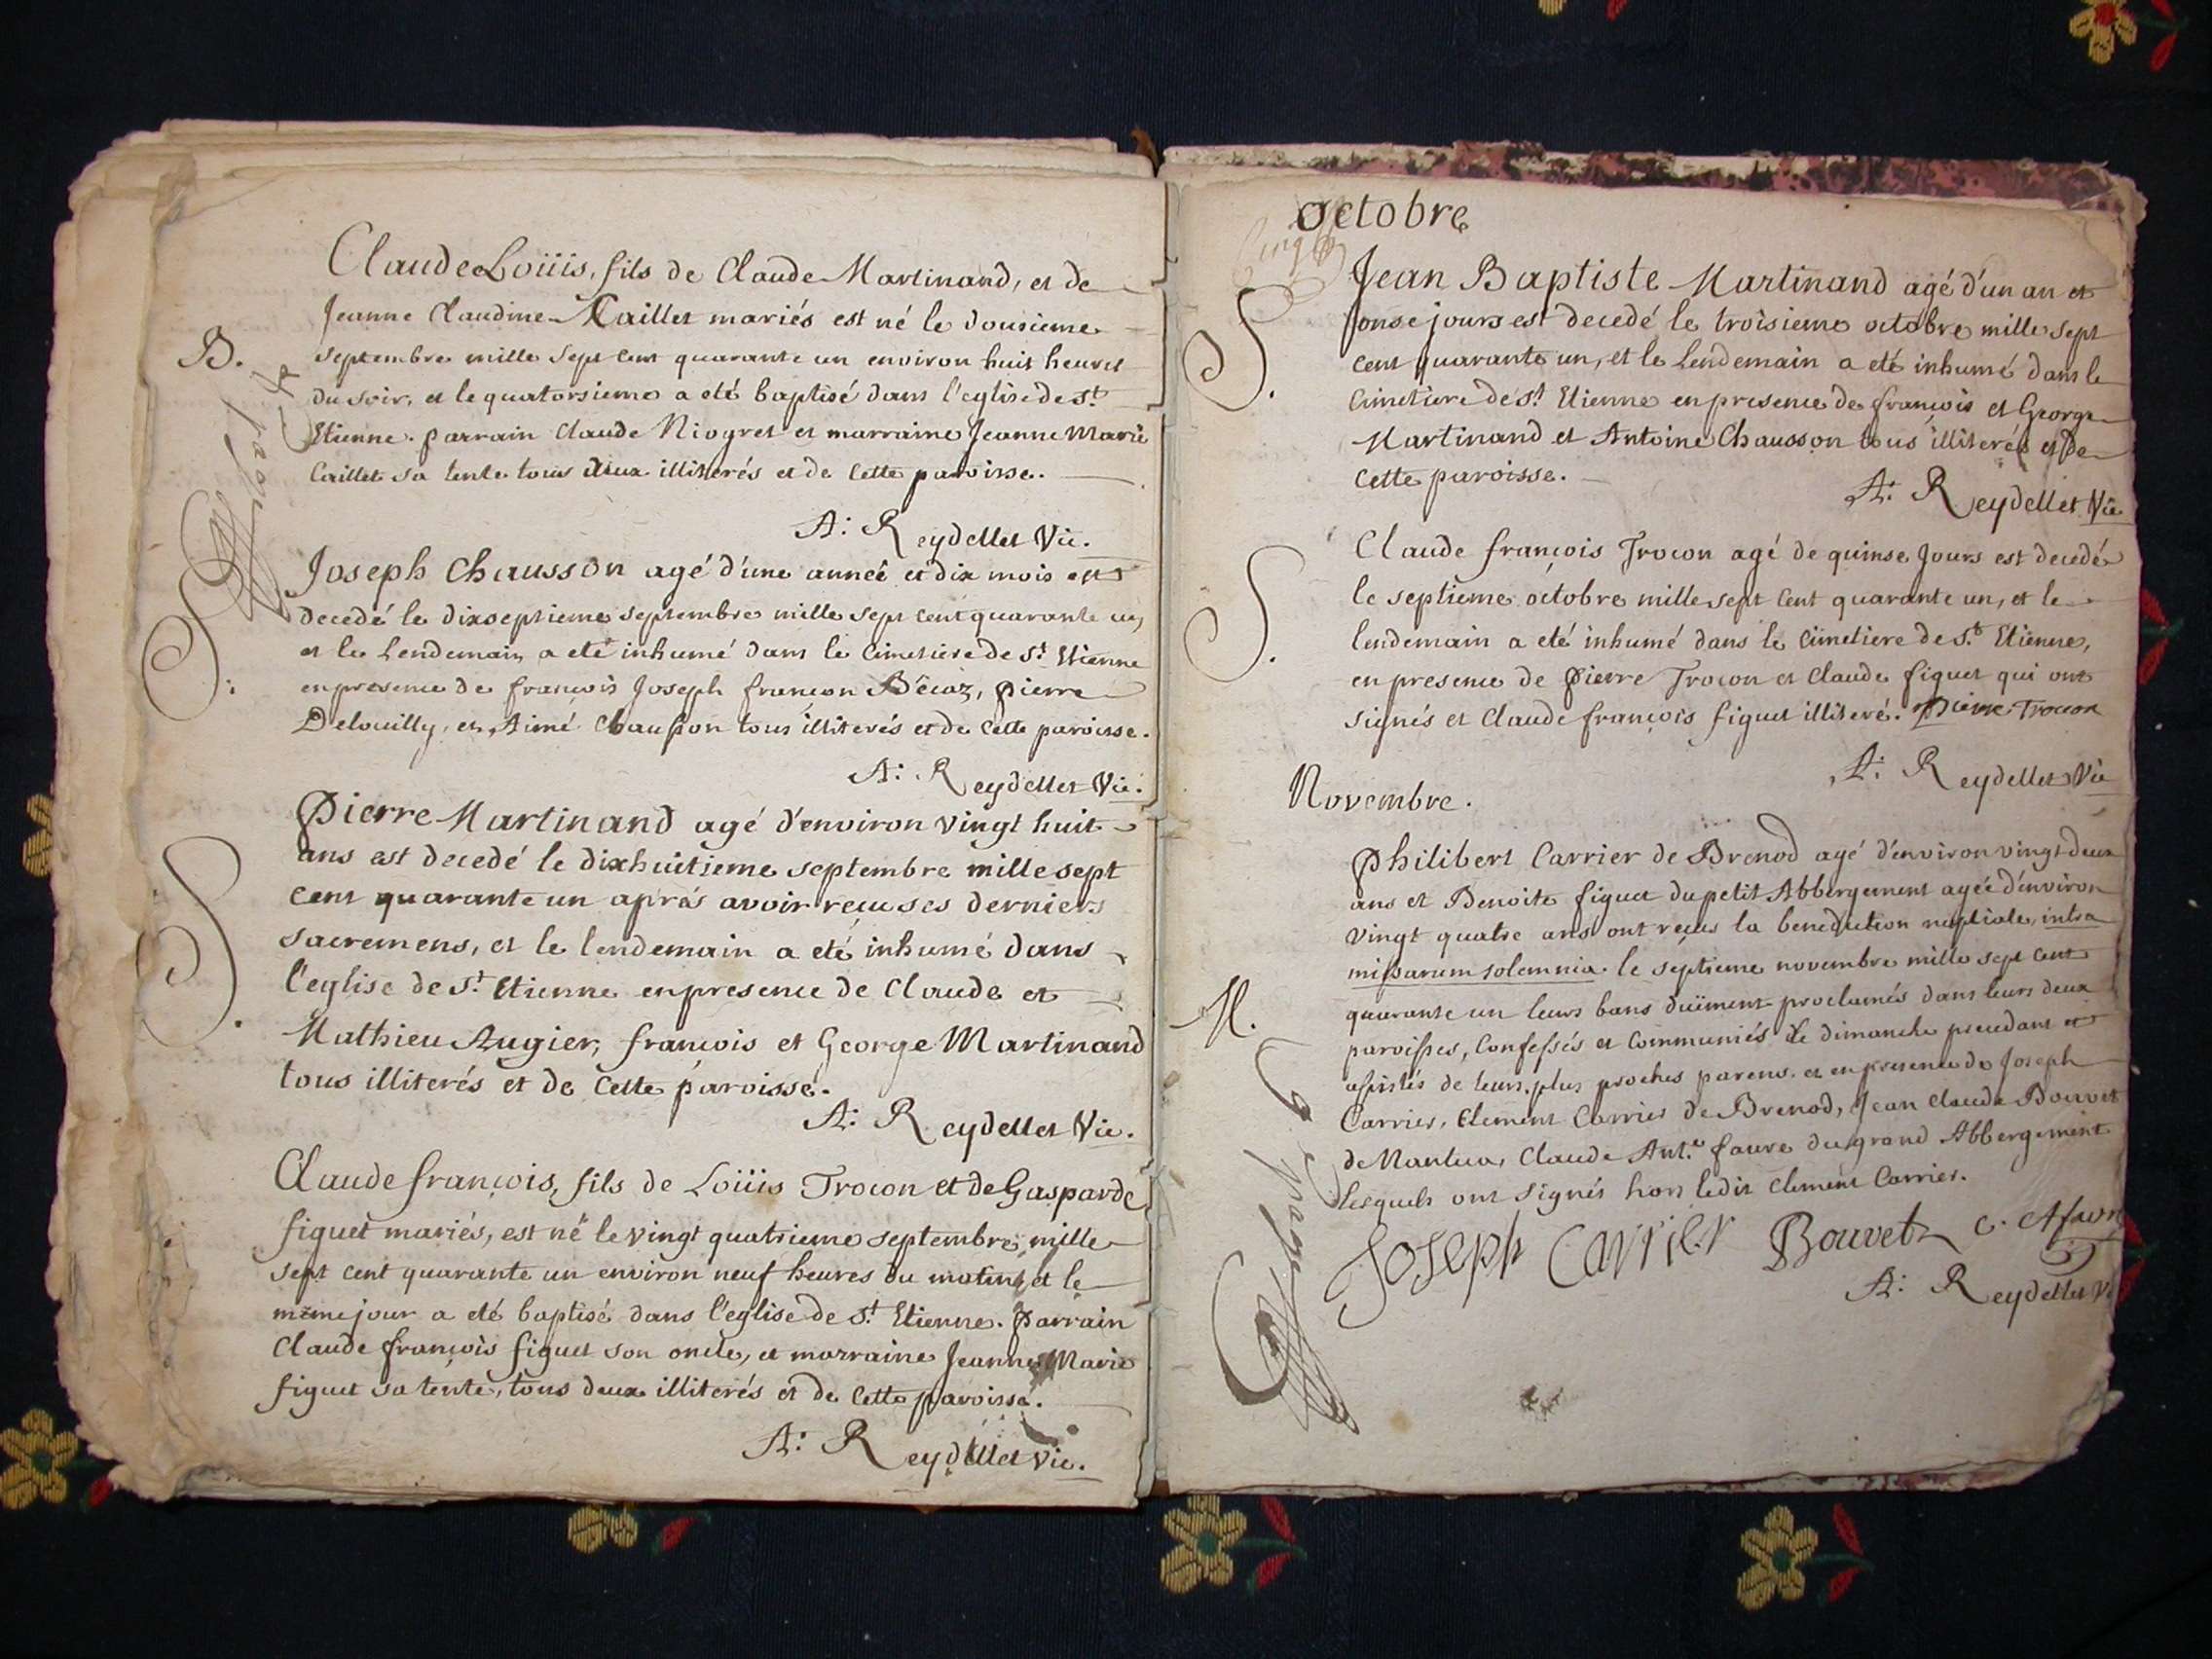 Claude Loüis, fils de Claude Martinand, et de
Jeanne Claudine Caillet mariés est né le dousieme
B.
septembre mille sept cent quarante un environ huit heures
du soir, et le quatorsieme a eté baptisé dans l'eglise de St.
Etienne. parrain Claude Niogret et marraine Jeanne Marie
Caillet sa tente tous deux illiterés et de cette paroisse.
A: Reydellet Vic.
Joseph Chausson agé d'une anneé et dix mois est
decedé le dixseptieme septembre mille sept cent quarante un,
S.
et le Lendemain a eté inhumé dans le Cimetiere de St. Etienne
en presence de françois Joseph françon Bécoz, pierre
Delouilly, et Aimé Chausson tous illiterés et de cette paroisse.
A: Reydellet Vic.
Pierre Martinand agé d'environ vingt huit
ans est decedé le dixhuitieme septembre mille sept
cent quarante un aprés avoir reçu ses derniers
S.
sacremens, et le lendemain a eté inhumé dans
l'eglise de St. Etienne en presence de Claude et
Mathieu Augier, françois et George Martinand
tous illiterés et de cette paroisse.
A: Reydellet Vic.
Claude françois, fils de Loüis Trocon et de Gasparde
figuet mariés, est né le vingt quatrieme septembre mille
sept cent quarante un environ neuf heures du matin, et le
mémejour a eté baptisé dans l'eglise de St. Etienne. Parrain
Claude françois figuet son oncle, et marraine Jeanne Marie
figuet sa tente, tous deux illiterés et de cette paroisse.
A: Reydellet Vic.
octobre
Jean Baptiste Martinand agé d'un an et
onse jours est decedé le troisieme octobre mille sept
S.
cent quarante un, et le Lendemain a eté inhumé dans le
Cimetiere de St. Etienne en presence de françois et George
Martinand et Antoine Chausson tous illiterés et de
cette paroisse.
A: Reydellet Vic.
Claude françois Trocon agé de quinse Jours est decedé
le septieme octobre mille sept cent quarante un, et le
S.
lendemain a eté inhumé dans le cimetiere de St. Etienne,
en presence de Pierre Trocon et Claude figuet qui ont
signés et Claude françois figuet illiteré. Pierre Trocon
A: Reydellet Vic
Novembre.
Philibert Carrier de Brenod agé d'environ vingt deux
ans et Benoite figuet du petit Abbergement agée d'environ
vingt quatre ans ont reçus la benediction nuptiale, intra
missarum solemnia. le septieme novembre mille sept cent
M.
quarante un leurs bans duëment proclamés dans leurs deux
paroisses, Confessés et Communiés le dimanche precedant et
assistés de leurs plus proches parens. et en presence de Joseph
Carrier, Clement Carrier de Brenod, Jean Claude Bouvet
de Nantua, Claude Ant.e favre du grand Abbergement
lesquels ont signés hors ledit Clement Carrier.
Joseph Carrier Bouvet
A: Reydellet Vi